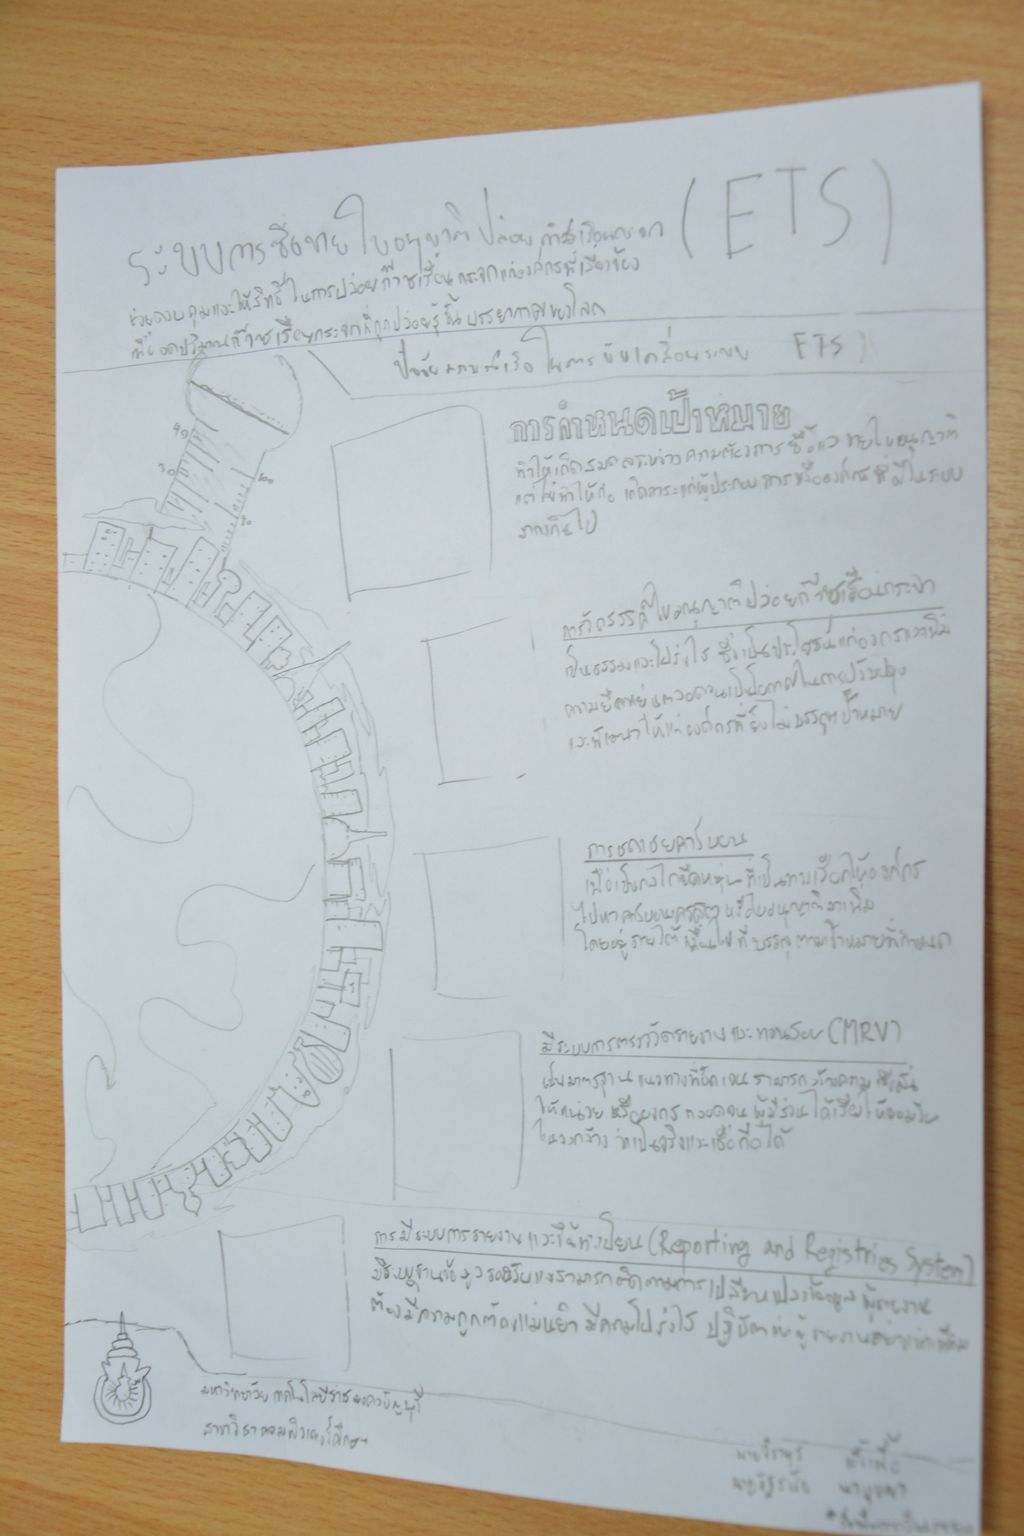 ระบบการซื้อขายใบอนุญาติปล่อยก๊าซเรือนกระจก (ETS)
ช่วยควบคุมและให้สิทธิ์ในการปล่อยก๊าซเรือนกระจกแก่องค์กรที่เกี่ยวข้อง
เพื่อลดปริมาณก๊าซเรือนกระจกที่ถูกปล่อยสู่ชั้นบรรยากาศของโลก
ปัจจัยความสำเร็จในการขับเคลื่อนระบบ ETS
การกำหนดเป้าหมาย
ทำให้เกิดสมดุลระหว่างความต้องการซื้อและขายใบอนุญาติ
แต่ไม่ทำให้เกิดภาระแก่ผู้ประกอบการหรือองค์กรที่มีในระบบ
มากเกินไป
การจัดสรรใบอนุญาติปล่อยก๊าซเรือนกระจก
เป็นธรรมและโปร่งใส ซึ่งเป็นประโยชน์แก่องกรและเพิ่ม
ความยืดหยุ่นตลอดจนเป็นโอกาสในการปรับปรุง
และพัฒนาให้แก่องค์กรที่ยังไม่บรรลุเป้าหมาย
การชดเชยคาร์บอน
เพื่อเป็นกลไกยืดหยุ่นที่เป็นทางเลือกให้องค์กร
ไปหาคาร์บอนเครดิตหรือใบอนุญาติมาเพิ่ม
โดยอยู่ภายใต้เงื่อนไขที่บรรลุตามเป้าหมายที่กำหนด
มีระบบการตรวจวัดรายงานและทวนสอบ (MRV)
เป็นมาตรฐาน แนวทางที่ชัดเจน สามารถสร้างความเชื่อมั่น
ให้หน่วย หรือองกร ตลอดจน ผู้มีส่วนได้เสียให้ยอมรับ
ในวงกว้าง ว่าเป็นจริงและเชื่อถือได้
การมีระบบการรายงานและขึ้นทะเบียน (Reporting and Registries System)
มีระบบฐานข้อมูลรองรับและสามารถติดตามการเปลี่ยนแปลงข้อมูล ผู้รายงาน
ต้องมีความถูกต้องแม่นยำ มีความโปร่งใส ปฏิบัติต่อผู้รายงานอย่างเท่าเทียม
มหาวิทยาลัยเทคโนโลยีราชมงคลธัญบุรี
สาขาวิชาคอมพิวเตอร์ศึกษา